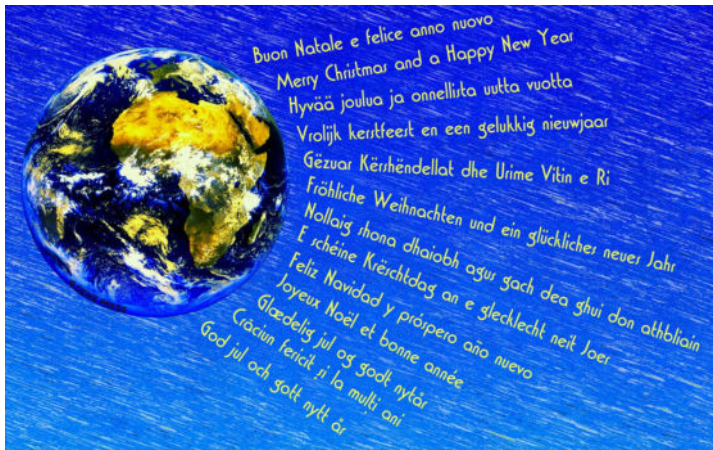 Buon Natale e felice anno nuovo
Merry Christmas and a Happy New Year
Hyvää joulua ja onnellista uutta vuotta
Vrolijk kerstfeest en een gelukkig nieuwjaar
Gëzuar Kërshëndellat dhe Urime Vitin e Ri
Fröhliche Weihnachten und ein glückliches neues Jahr
Nollaig shona dhaoibh agus gach dea ghui don athbliain
E schéine Krëschtdag an e glecklecht neit Joer
Feliz Navidad y próspero año nuevo
Joyeux Noël et bonne année
Glædelig jul og godt nytår
Crăciun fericit și la multi ani
God jul och gott nytt år